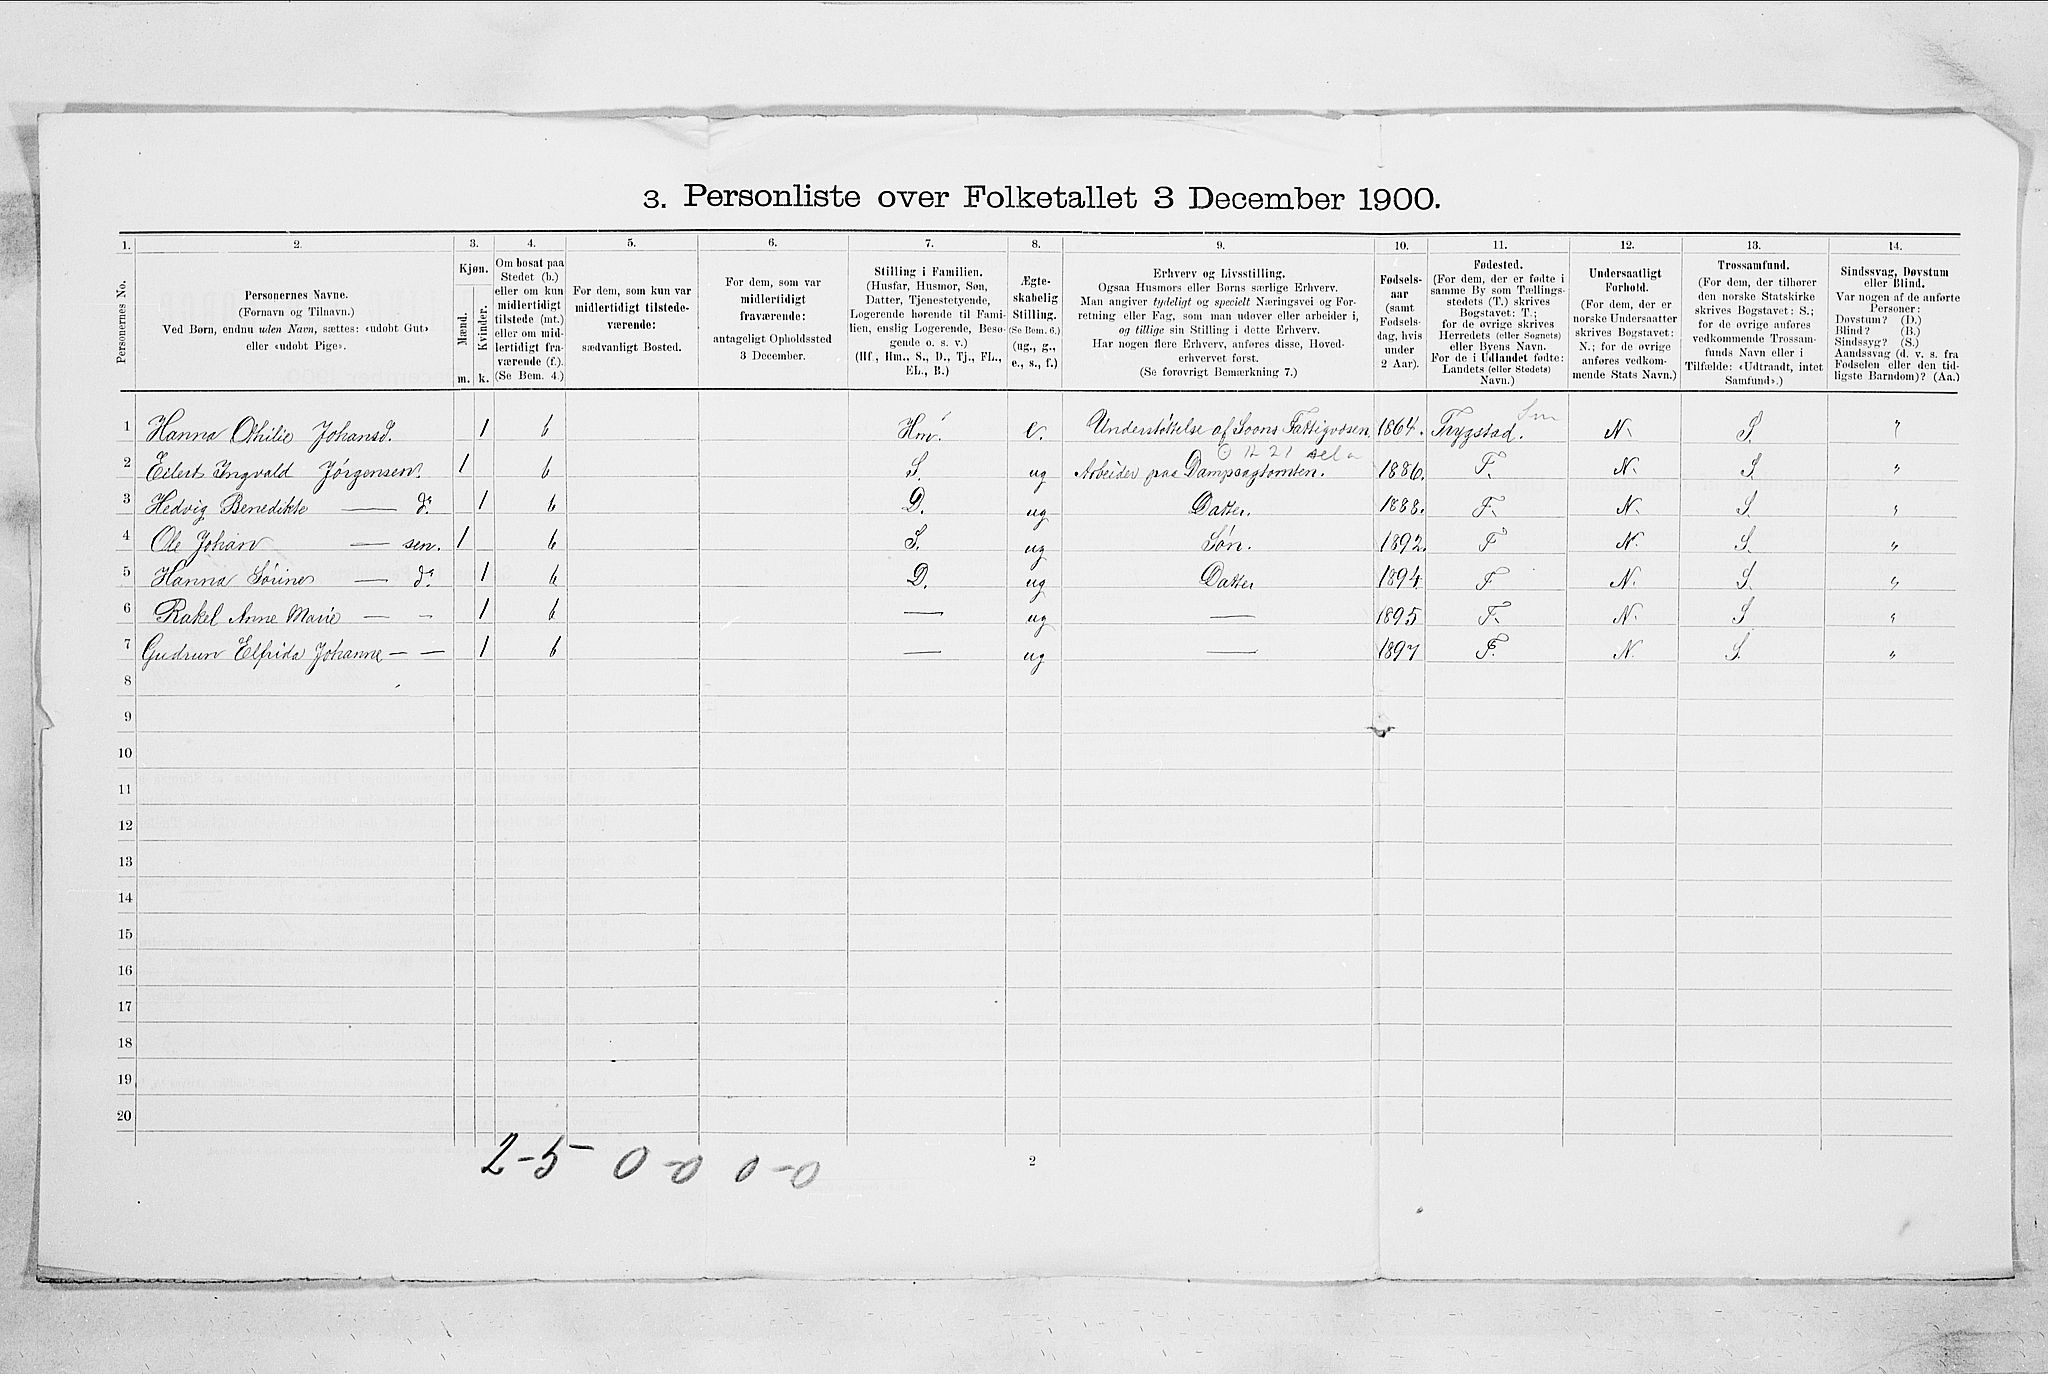 3. Personliste over Folketallet 3 December 1900.
1. 2. 3. 4. 5. 6. 7. 8. 9. 10. 11. 12. 13. 14.
Personernes No.
Personernes Navne.
(Fornavn og Tilnavn.)
Ved Børn, endnu uden Navn, sættes: «udøbt Gut»
eller «udøbt Pige».
Kjøn.
Mænd.
Kvinder.
m. k.
Om bosat paa
Stedet (b.)
eller om kun
midlertidigt
tilstede (mt.)
eller om mid-
lertidigt fra-
værende (f.).
(Se Bem. 4.)
For dem, som kun var
midlertidigt tilstede-
værende:
sædvanligt Bosted.
For dem, som var
midlertidigt
fraværende:
antageligt Opholdssted
3 December.
Stilling i Familien.
(Husfar, Husmor, Søn,
Datter, Tjenestetyende,
Logerende hørende til Fami-
lien, enslig Logerende, Besø-
gende o. s. v.)
(Hf., Hm., S., D., Tj., FL.,
EL., B.)
Ægte-
skabelig
Stilling.
(Se Bem. 6.)
(ug., g.,
e., s., f.)
Erhverv og Livsstilling.
Ogsaa Husmors eller Børns særlige Erhverv.
Man angiver tydeligt og specielt Næringsvei og For-
retning eller Fag, som man udøver eller arbeider i,
og tillige sin Stilling i dette Erhverv.
Har nogen flere Erhverv, anføres disse, Hoved-
erhvervet først.
(Se forøvrigt Bemærkning 7.)
Fødsels-
aar
(samt
Fødsels-
dag, hvis
under
2 Aar).
Fødested.
(For dem, der er fødte i
samme By som Tællings-
stedets (T.) skrives
Bogstavet: T.;
for de øvrige skrives
Herredets (eller Sognets)
eller Byens Navn.
For de i Udlandet fødte:
Landets (eller Stedets)
Navn.)
Undersaatligt
Forhold.
(For dem, der er
norske Undersaatter
skrives Bogstavet:
N.; for de øvrige
anføres vedkom-
mende Stats Navn.)
Trossamfund.
(For dem, der tilhører
den norske Statskirke
skrives Bogstavet: S.;
for de øvrige anføres
vedkommende Trossam-
funds Navn eller i
Tilfælde: «Udtraadt, intet
Samfund».)
Sindssvag, Døvstum
eller Blind.
Var nogen af de anførte
Personer:
Døvstum? (D.)
Blind? (B.)
Sindssyg? (S.)
Aandssvag (d. v. s. fra
Fødselen eller den tid-
ligste Barndom)? (Aa.)
1 Hanna Othilie Johansd. 1 b Hm. e. Understøttelse af Soons Fattigvæsen 1864. Trygstad. N. S. "
2 Eilert Ingvald Jørgensen. 1 b S. ug Arbeider paa Dampsagtomten. 1886. T. N. S. "
3 Hedvig Benedikte — dr. 1 b D. ug Datter. 1888. T. N. S. "
4 Ole Johan — sen. 1 b S. ug Søn. 1892. T N. S. "
5 Hanna Sørine — dr. 1 b D. ug Datter 1894. T N. S. "
6 Rakel Anne Marie — - 1 b — ug — 1895 T. N. S "
7 Gudrun Elfrida Johanne — — 1 b — ug — 1897 T. N. S. "
8
9
10
11
12
13
14
15
16
17
18
19
20
2-5 0-0 0-0
2